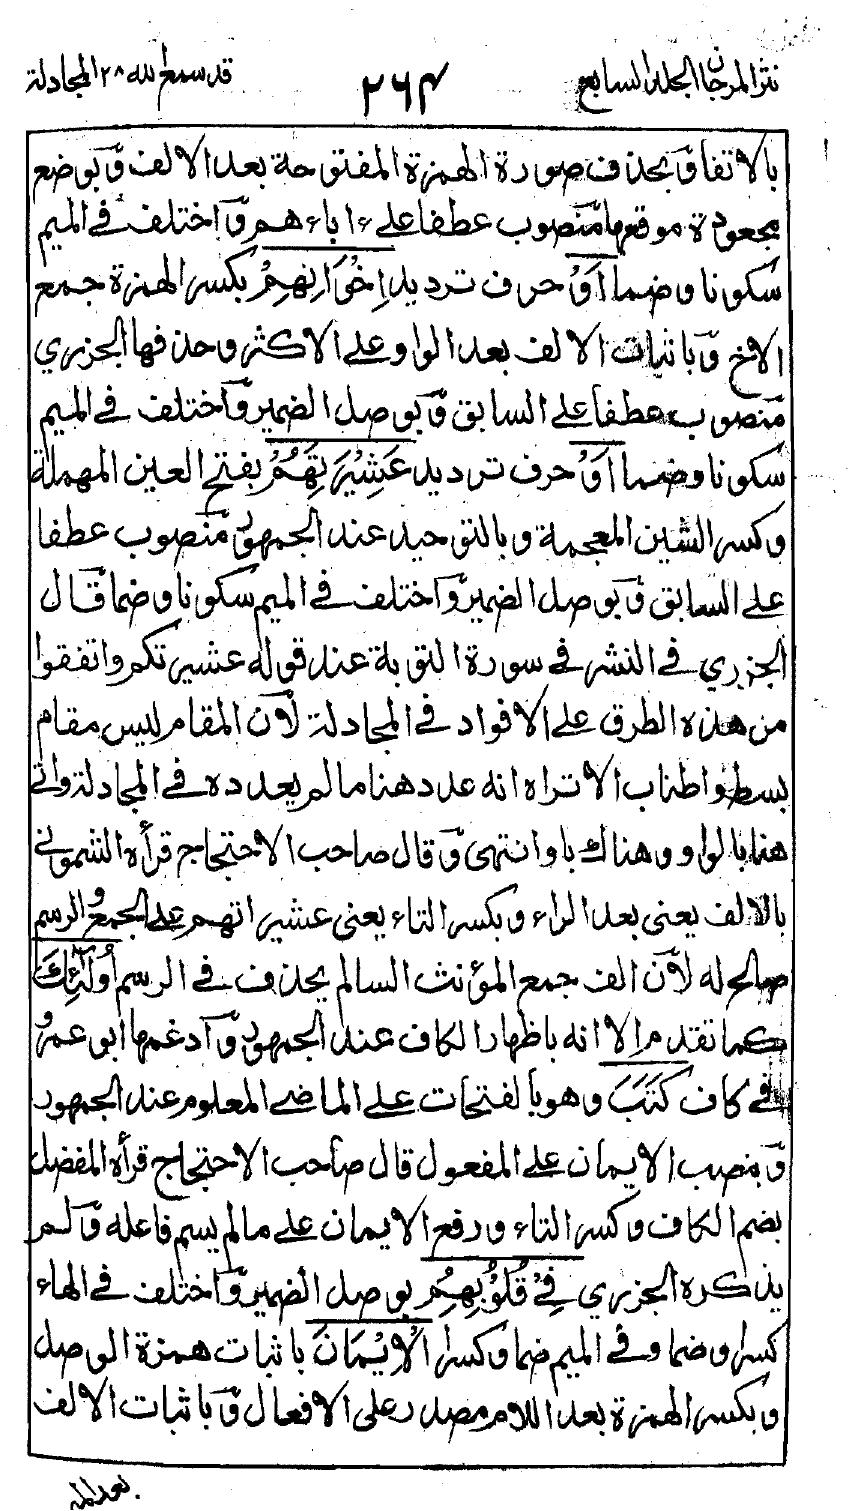 نثر المرجان الجلد السابع
٢٦٤
قد سمع الله ٢٨ المجادلة
بالاتفاق بحذف صورة الهمزة المفتوحة بعد الالف وَبوضع
مجعودة موقعها مَنصوب عطفا على ءاباءهم وَاختلف في الميم
سكونا وضما أَوْ حرف ترديد إِخْوَانَهُمْ بكسر الهمزة جمع
الاخ وَباثبات الالف بعد الواو على الاكثر وحذفها الجزري
مَنصوب عطفاً على السابق وَبوصل الضمير وَاختلف في الميم
سكونا وضما أَوْ حرف ترديد عَشِيْرَتَهُمْ بفتح العين المهملة
وكسر الشين المعجمة وبالتوحيد عند الجمهور مَنصوب عطفا
على السابق وَبوصل الضمير وَاختلف في الميم سكونا وضما قَال
الجزري في النشر في سورة التوبة عند قوله عشيرتكم واتفقوا
من هذه الطرق على الافراد في المجادلة لأَن المقام ليس مقام
بسط واطناب الا تراه انه عدد هنا مالم يعدده في المجادلة واتى
هنا بالواو وهناك باو انتهى وَقال صاحب الاحتجاج قرأه الشموني
بالالف يعني بعد الراء وبكسر التاء يعني عشيراتهم على الجمع والرسم
صالح له لأَن الف جمع المؤنث السالم يحذف في الرسم أُولَٰئِكَ
كما تقدم الا انه باظهار الكاف عند الجمهور وَآدغمها ابو عمرو
في كاف كَتَبَ وهو بالفتحات على الماضي المعلوم عند الجمهور
وَبنصب الايمان على المفعول قال صاحب الاحتجاج قرأه المفضل
بضم الكاف وكسر التاء ورفع الايمان على مالم يسم فاعله وَلم
يذكره الجزري فِيْ قُلُوْبِهِمُ بوصل الضمير وَاختلف في الهاء
كسرا وضما وفي الميم ضما وكسرا الْإِيْمَانَ باثبات همزة الوصل
وبكسر الهمزة بعد اللام مصدر على الافعال وَباثبات الالف
بعد الميم